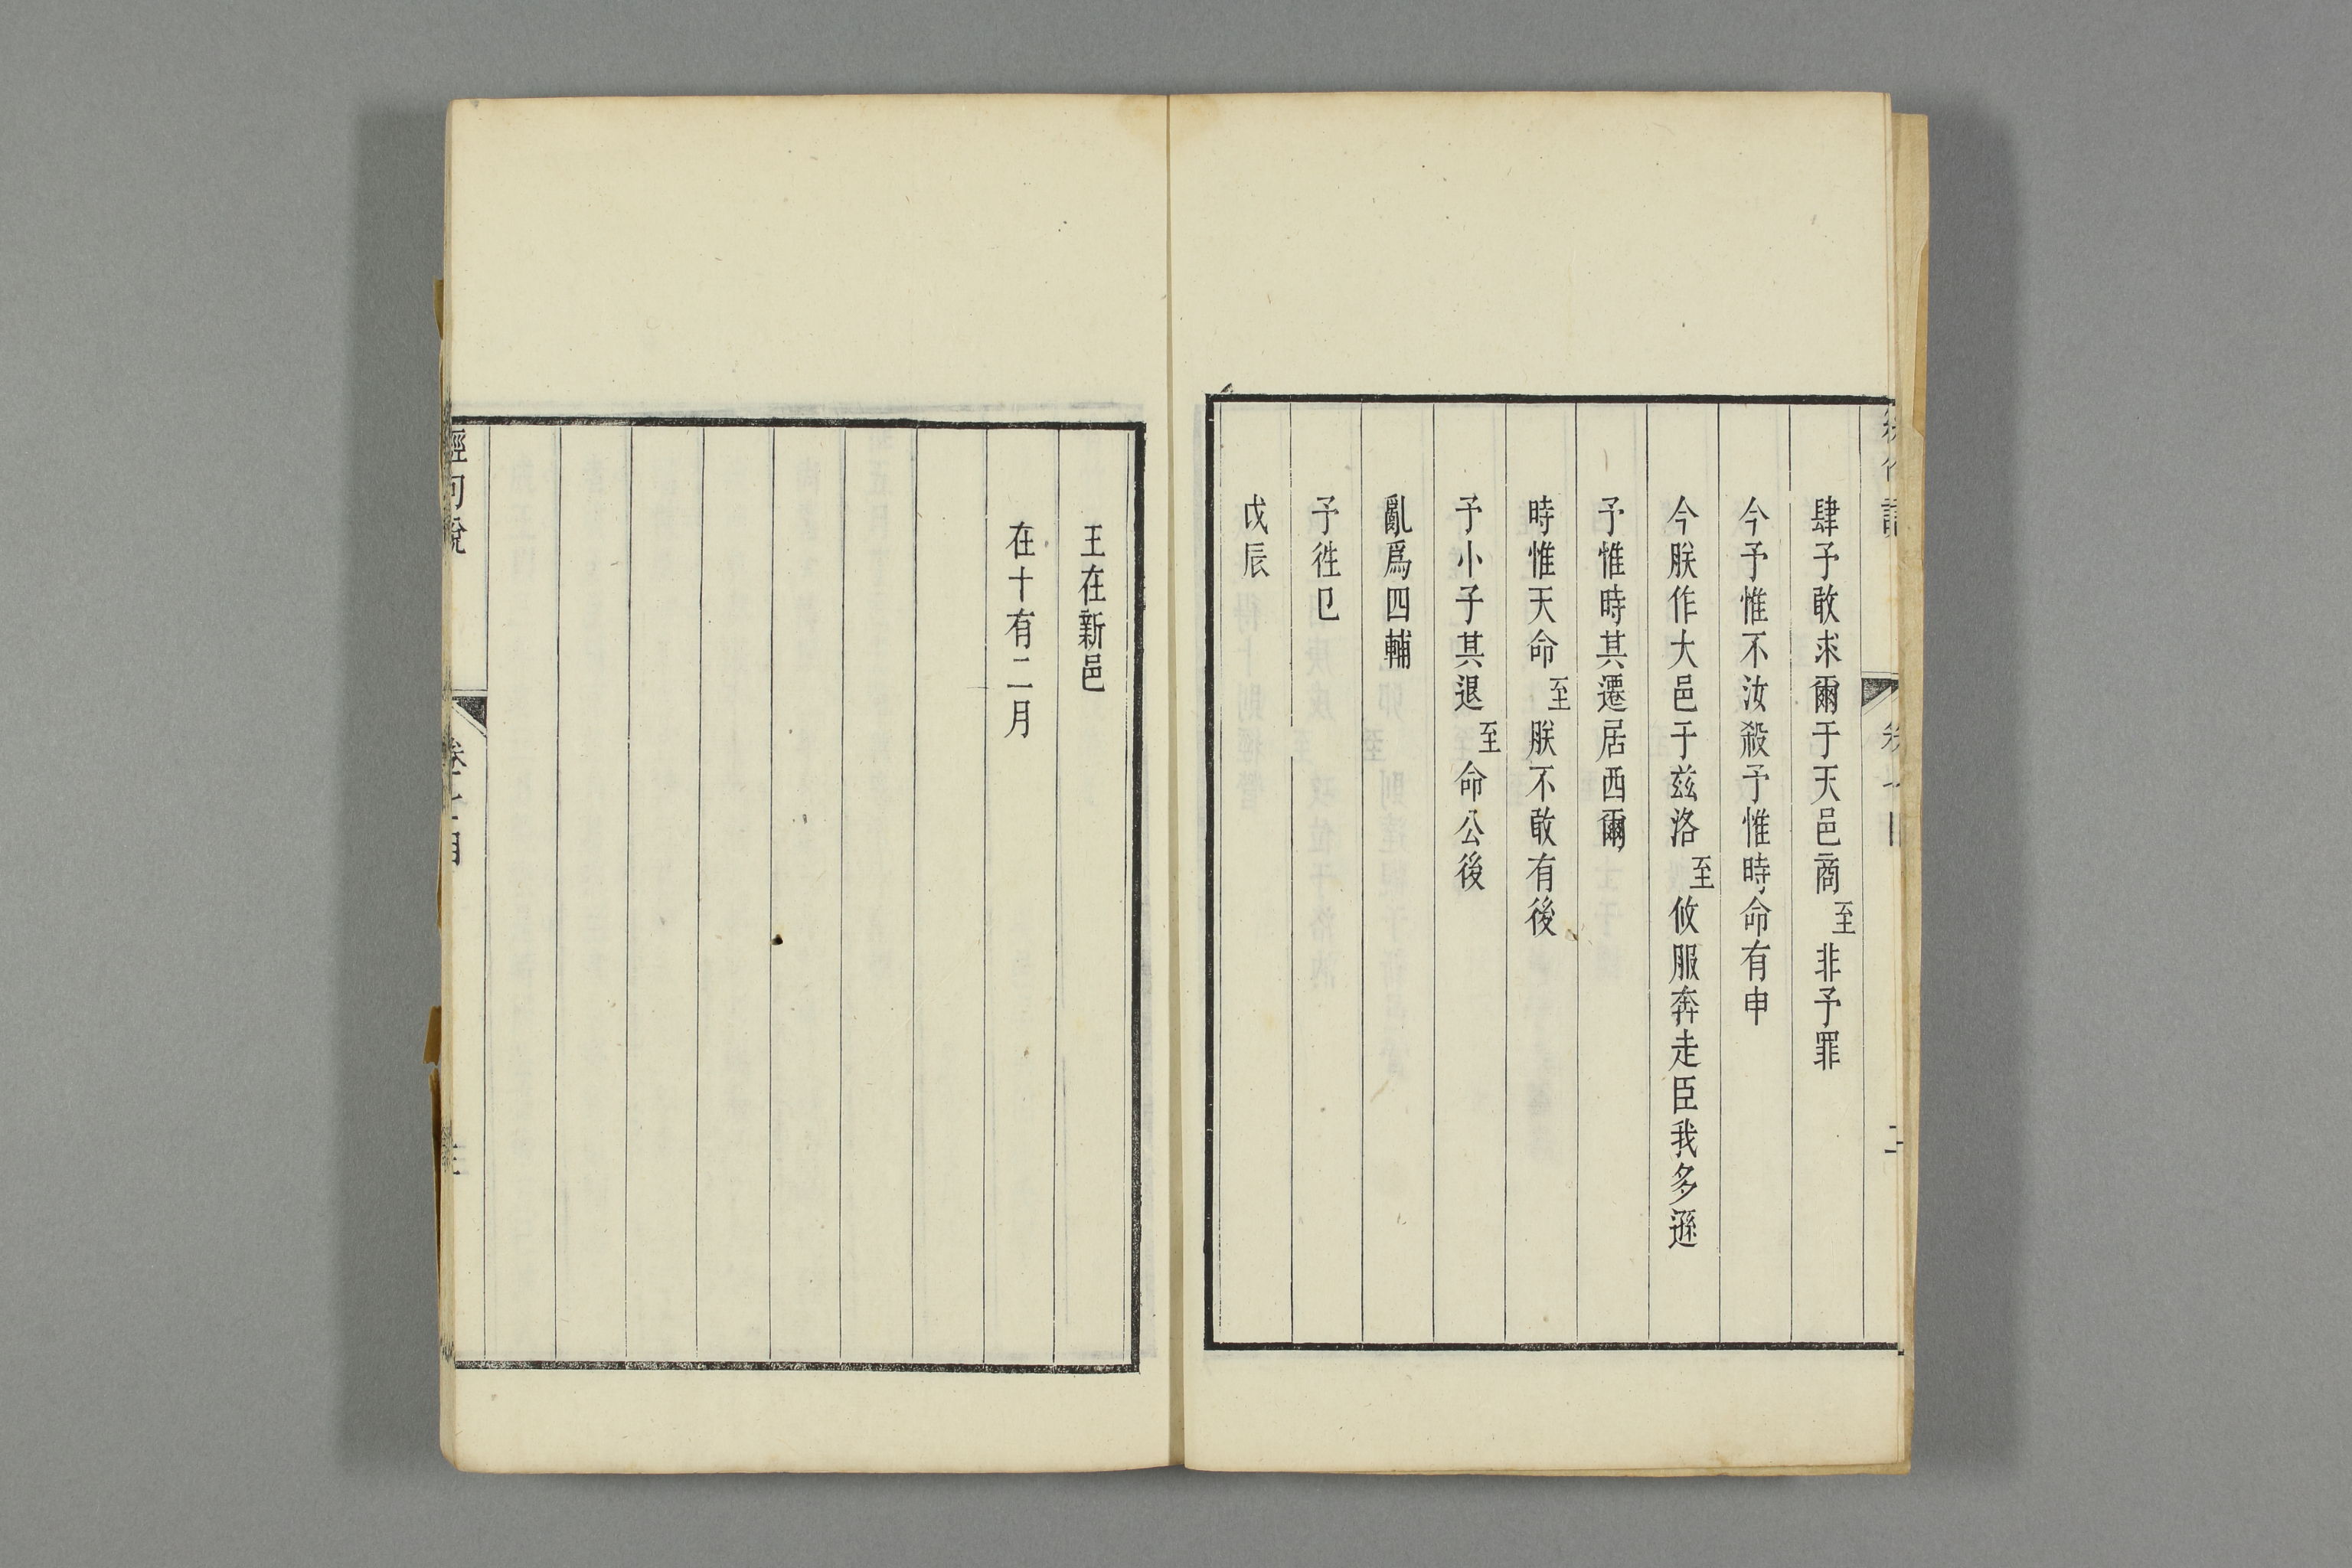 肆予敢求爾于天邑商至非予罪
今予惟不汝殺予惟時命有申
今朕作大邑于玆洛至攸服奔走臣我多遜
予惟時其遷居西爾
時惟天命至朕不敢有後
予小子其退至命公後
亂爲四輔
予徃已
戊辰
王在新邑
在十有二月
經句說
卷十七目
三